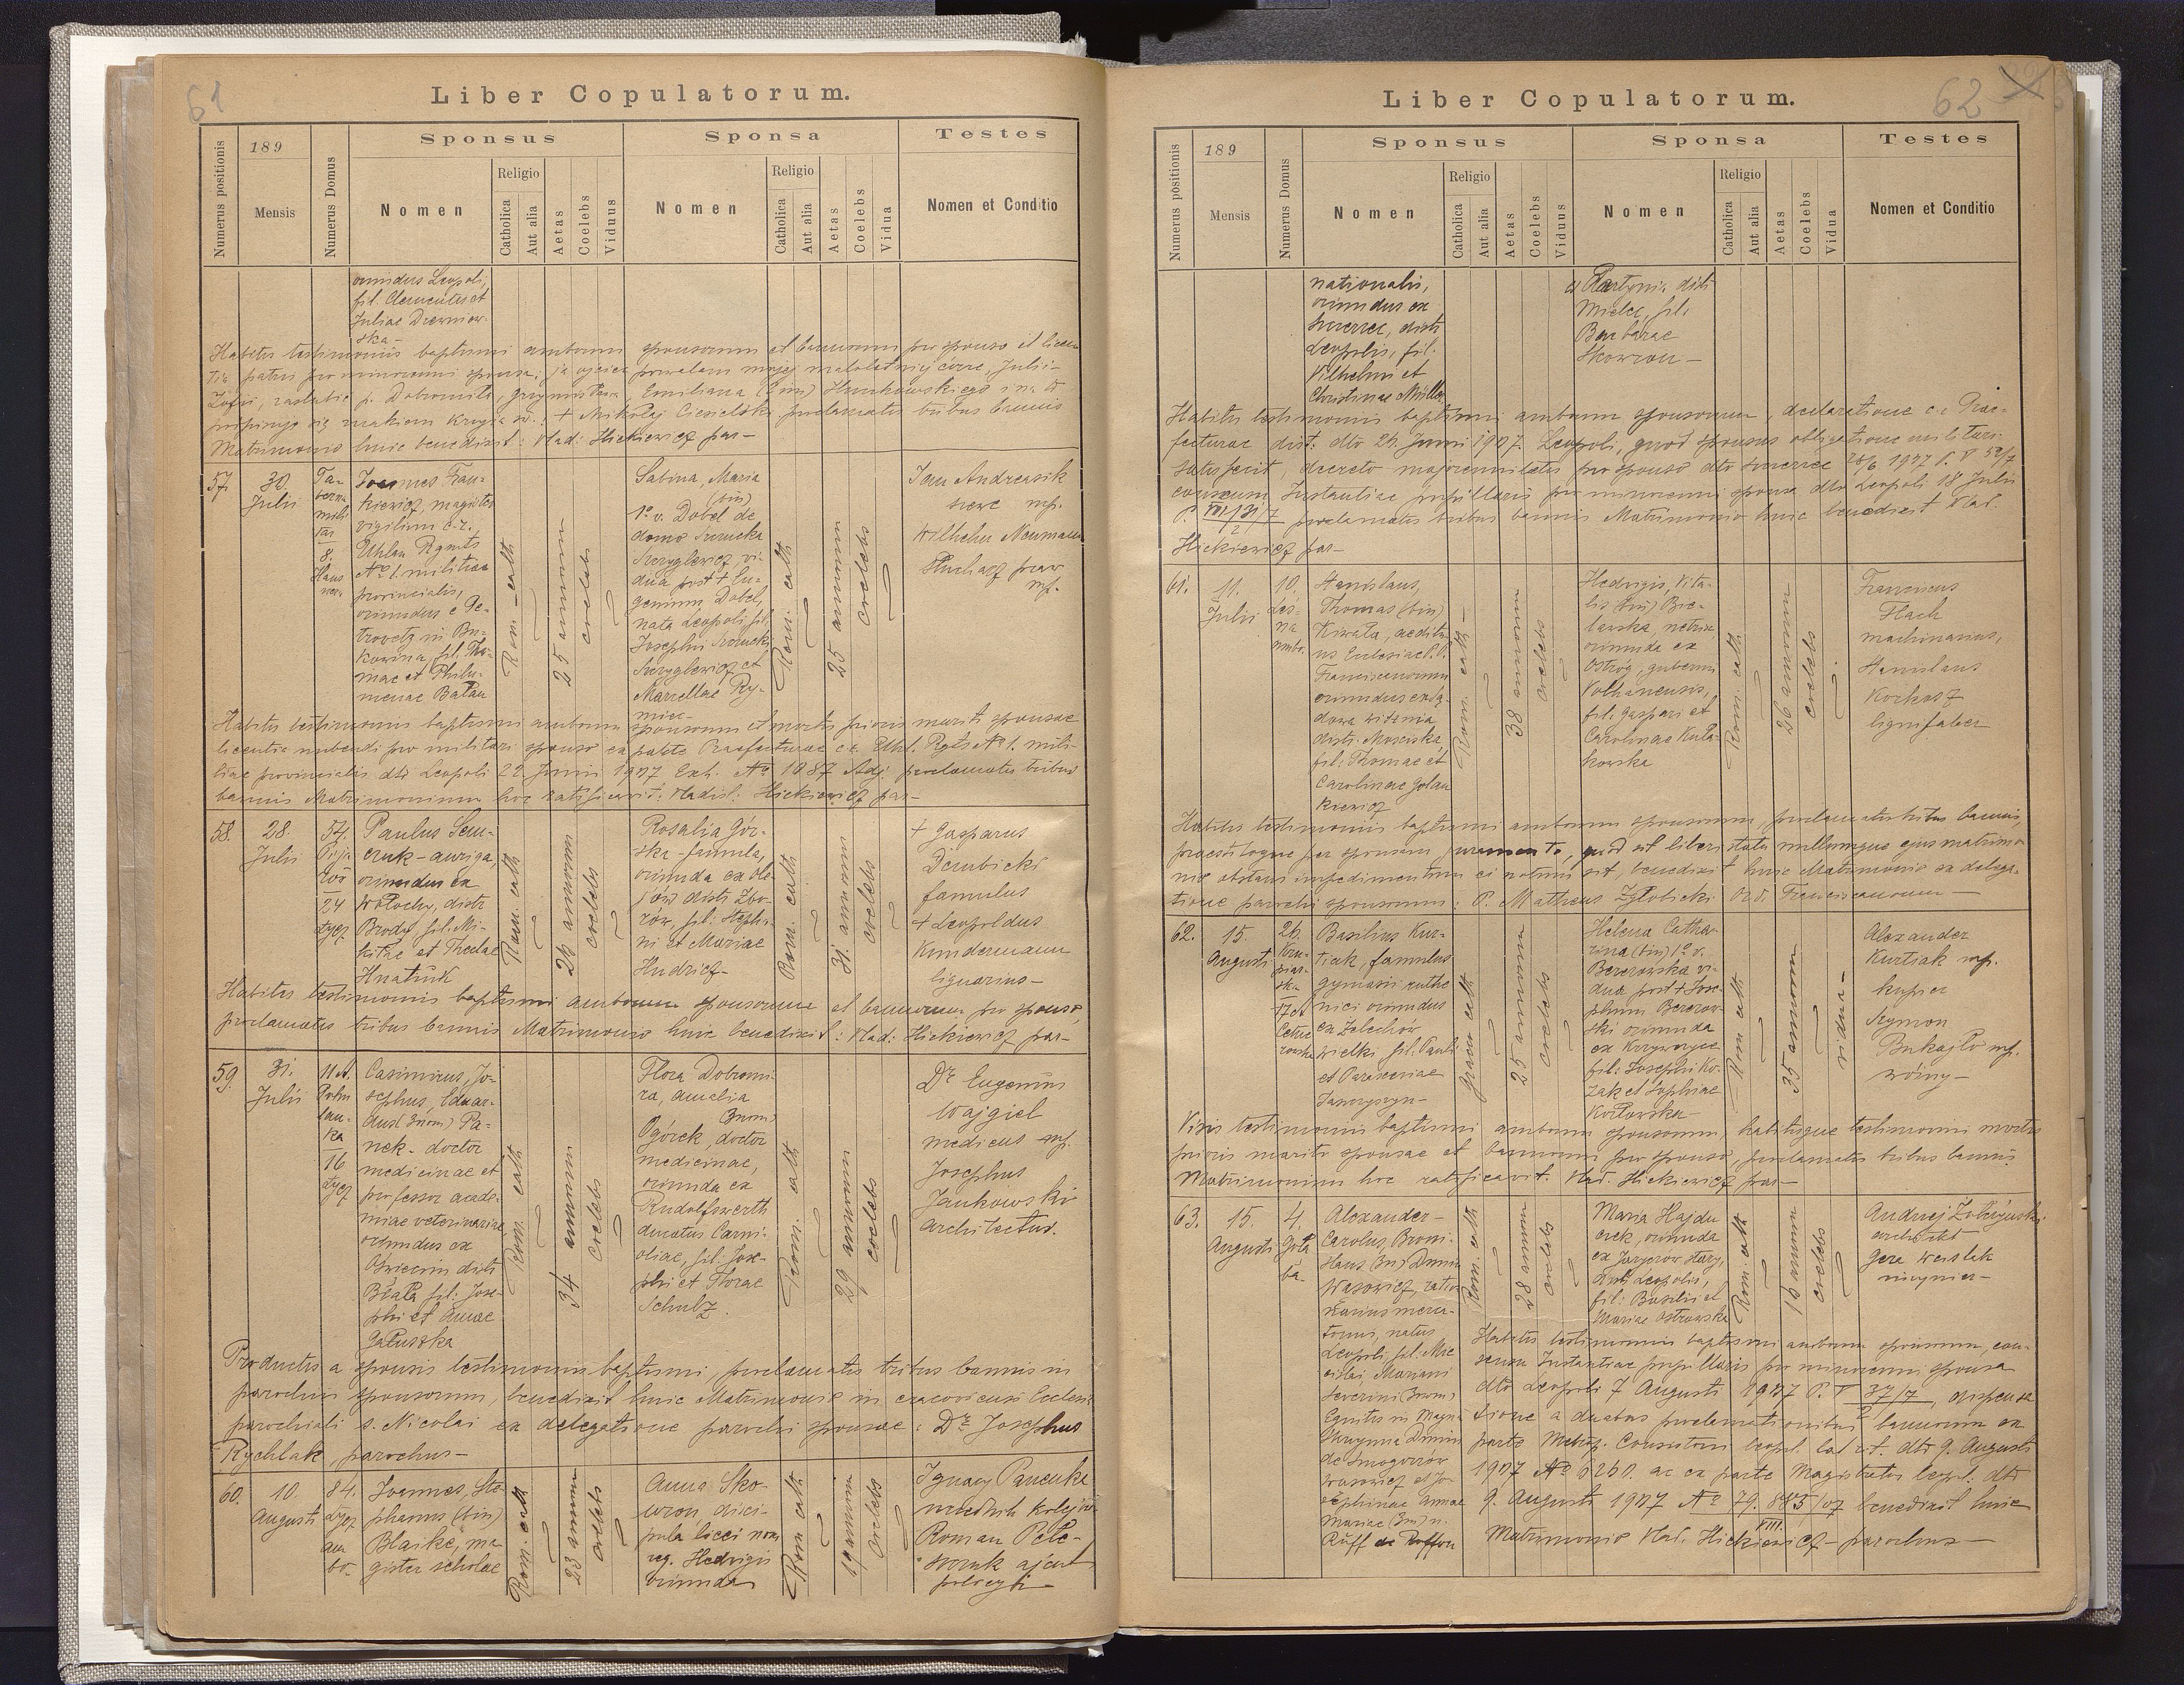 61
Liber Copulatorum.
Numerus positionis
189
Mensis
Numerus Domus
Sponsus
Nomen
Religio
Catholica
Aut alia
Aetas
Coelebs
Viduus
Sponsa
Nomen
Religio
Catholica
Aut alia
Aetas
Coelebs
Vidua
Testes
Nomen et Conditio
oriundus Leopoli,
fil. Clementis et
Juliae Drewniow-
ska-
Habitis testimoniis baptismi amborum sponsorum et bannorum pro sponso et licen-
tia patris pro minorenni sponsa: ja ojciec pozwalam mojej małoletniej córce, Julii-
Zofii, zaślubić p. Dobromiła, Emiliana (bin)
podpisuję się znakiem krzyża św.: + Mikołaj Ciesielski proclamatis tribus bannis
Matrimonio huic benedixit: Vlad: Hickiewicz par-
57.
30.
Julii
Ta-
berna
mili
tar
8.
Joannes Fran-
kiewicz, magister
vigilum c. r.
Uhlan Rgmts
No 1. militiae
provincialis,
oriundus e Pe-
trovetz in Bu-
kowina, fil. Tho-
mae et Philo-
menae Batau
Rom-cath
25 annorum
coelebs
Sabina, Maria
(bin)
1o v. Dobel de
domo
vi-
dua post + Eu-
genium Dobel,
nata Leopoli, fil.
Josephi
et
Marcellae Ry-
Rom. cath
25 annorum
coelebs
Jan
mp.
Wilhelm Neumann
Słuchacz praw
mp.
Habitis testimoniis baptismi amborum sponsorum et mortis prioris mariti sponsae
licentia nubendi pro militari sponso ex parte Praefecturae c. r. Uhl. Rgts No 1. mili-
tiae provincialis dto Leopoli 22 Junii 1907 Exh. No 1087 Adj. proclamatis tribus
bannis Matrimonium hoc ratificavit: Vladisl: Hickiewicz par-
58.
28.
Julii
54.
24
Łycz
Paulus Sem-
czuk-auriga,
oriundus ex
Wołochy, distr
Brody fil. Mi-
kitae et Theclae
Hnatiuk
Rom. cath
26 annorum
coelebs
Rosalia Gór-
ska-famula,
oriunda ex Ole-
jów distr Zbo-
rów, fil. Stepha-
ni et Mariae
Hudricz-
Rom. cath
31. annorum
coelebs
+ Gasparus
Dembicki
famulus
+ Leopoldus
Kundermann
lignarius-
Habitis testimoniis baptismi amborum sponsorum et bannorum pro sponso,
proclamatis tribus bannis Matrimonio huic benedixit: Vlad: Hickiewicz par-
59.
31.
Julii
11 A.
Pohu
lan-
ka
16
Łycz
Casimirus, Jo-
sephus, Eduar-
dus (3nom) Pa-
nek-doctor
medicinae et
professor acade-
miae veterinariae
oriundus ex
Oświęcim distr
Biała fil: Jose-
phi et Annae
Gałuszka
Rom. cath
34 annorum
coelebs
Flora Dobromi-
ra, Amelia
3nom)
Ogórek, doctor
medicinae,
oriunda ex
Rudolfswerth
ducatus Carni-
oliae, fil. Jose-
phi et Florae
Schulz.
Rom. cath
29 annorum
coelebs
Dr Eugenius
Wajgiel
medicus mp.
Josephus
Jankowski
architectus.
Productis a sponsis testimoniis baptismi, proclamatis tribus bannis in
parochiis sponsorum, benedixit huic Matrimonio in cracoviensi Ecclesia
parochiali s. Nicolai ex delegatione parochi sponsae: Dr Josephus
Rychlak, parochus-
60.
10.
Augusti
84.
Łycz
am
bo-
Joannes, Ste
phanus (bin)
Blaike, ma-
gister scholae
Rom. cath
23 annorum
coelebs
Anna Sko-
wron disci-
pula licei nom
reg. Hedvigis
oriunda
Rom cath
19 annorum
coelebs
Ignacy Panenka
urzednik kolejow
Roman Pete-
ajent
policyi-
62
Liber Copulatorum.
Numerus positionis
189
Mensis
Numerus Domus
Sponsus
Nomen
Religio
Catholica
Aut alia
Aetas
Coelebs
Viduus
Sponsa
Nomen
Religio
Catholica
Aut alia
Aetas
Coelebs
Vidua
Testes
Nomen et Conditio
nationalis,
oriundus ex
Szczerzec, distr
Leopolis, fil.
Vilhelmi et
Christinae Müller
distr
Mielec, fil.
Barbarae
Skowron-
Habitis testimoniis baptismi amborum sponsorum, declaratione c. r. Prae-
fecturae dist. dto 26. Junii 1907. Leopoli, quod sponsus obligatione militari
satisfecit, decreto majorennitatis pro sponso dto Szczerzec 28/6 1907 P. V 52/7
consensu Instantiae pupillaris pro minorenni sponsa dto Leopoli 18 Julii
P. VII/31/7 proclamatis tribus bannis Matrimonio huic benedixit Vlad.
2
Hickiewicz par-
61.
11.
Julii
10.
Leś-
na
Stanislaus,
Thomas (bin)
Kiwała, aeditu
us Ecclesiae P.P.
Franciscanorum
oriundus ex Są-
dowa Wisznia,
distr. Mosciska,
fil: Thomae et
Carolinae Golan
kiewicz
Rom. cath-
38 annorum
coelebs
Hedvigis, Vita-
lis (bin) Bie-
lawska, netrix
oriunda ex
Ostróg, gubernii
Volhinensis,
fil: Gaspari et
Carolinae Kula-
kowska
Rom. cath
26 annorum
coelebs
Franciscus
Flach
machinarius,
Stanislaus
Korkosz
lignifaber
Habitis testimoniis baptismi amborum sponsorum, proclamatis tribus bannis,
praestitoque per sponsam juramento, quod sit liberi status nullumque ejus matrimo
nio obstans impedimentum ei notum sit, benedixit huic Matrimonio ex delega-
tione parochi sponsorum: P. Matheus Zgłobicki Ord. Franciscanorum-
62.
15.
Augusti
26.
Basilius Kur-
tiak, famulus
gymnasii ruthe
nici oriundus
ex Żelechów
wielki fil. Pauli
et Parasceviae
Graeco cath
25 annorum
coelebs
Helena Catha-
rina (bin) 1o v.
Berezowska vi-
dua post + Jose-
phum Berezow-
ski oriunda
ex Krzyworzyce
fil: Josephi Ko-
zak et Sophiae
Kozłowska-
Rom cath
35 annorum
vidua-
Alexander
Kurtiak mp.
kupiec
Szymon
Bukajło mp.
woźny-
Visis testimoniis baptismi amborum sponsorum, habitisque testimonii mortis
prioris mariti sponsae et bannorum pro sponso, proclamatis tribus bannis,
Matrimonium hoc ratificavit. Vlad. Hickiewicz par-
63.
15.
Augusti
4.
Gołę
bia-
Alexander-
Carolus, Broni-
slaus 3n) Dunin
Wąsowicz, ratio
narius merca-
torius, natus
Leopoli, fil. Mie
cislai, Mariani
Severini (3nom)
Equitis in Magna
Skrzynna Dunin
de Smogorzów
Wąsowicz et Jo-
sephinae Annae
Mariae (3n) n.
Rüff de Ruffon
Rom. cath
28 annorum
coelebs
Maria Hajdu
czek, oriunda
ex Jaryczów stary,
distr Leopolis,
fil: Basilii et
Mariae Ostrowska
Rom. cath
annorum
coelebs
Andrzej
architekt
inzynier-
Habitis testimoniis baptismi amborum sponsorum, con-
sensu Instantiae pupillaris pro minorenni sponsa
dto Leopoli 7 Augusti 1907 P. V 37/7, dispensa
tione a duabus proclamationibus bannorum ex
parte Metrop. Consistorii leopol. lat. rit. dto 9. Augusti
1907 No 6260. ac ex parte Magistratus leopol. dto
9. Augusti 1907 No 79.885/07 benedixit huic
VIII.
Matrimonio Vlad. Hickiewicz-parochus-